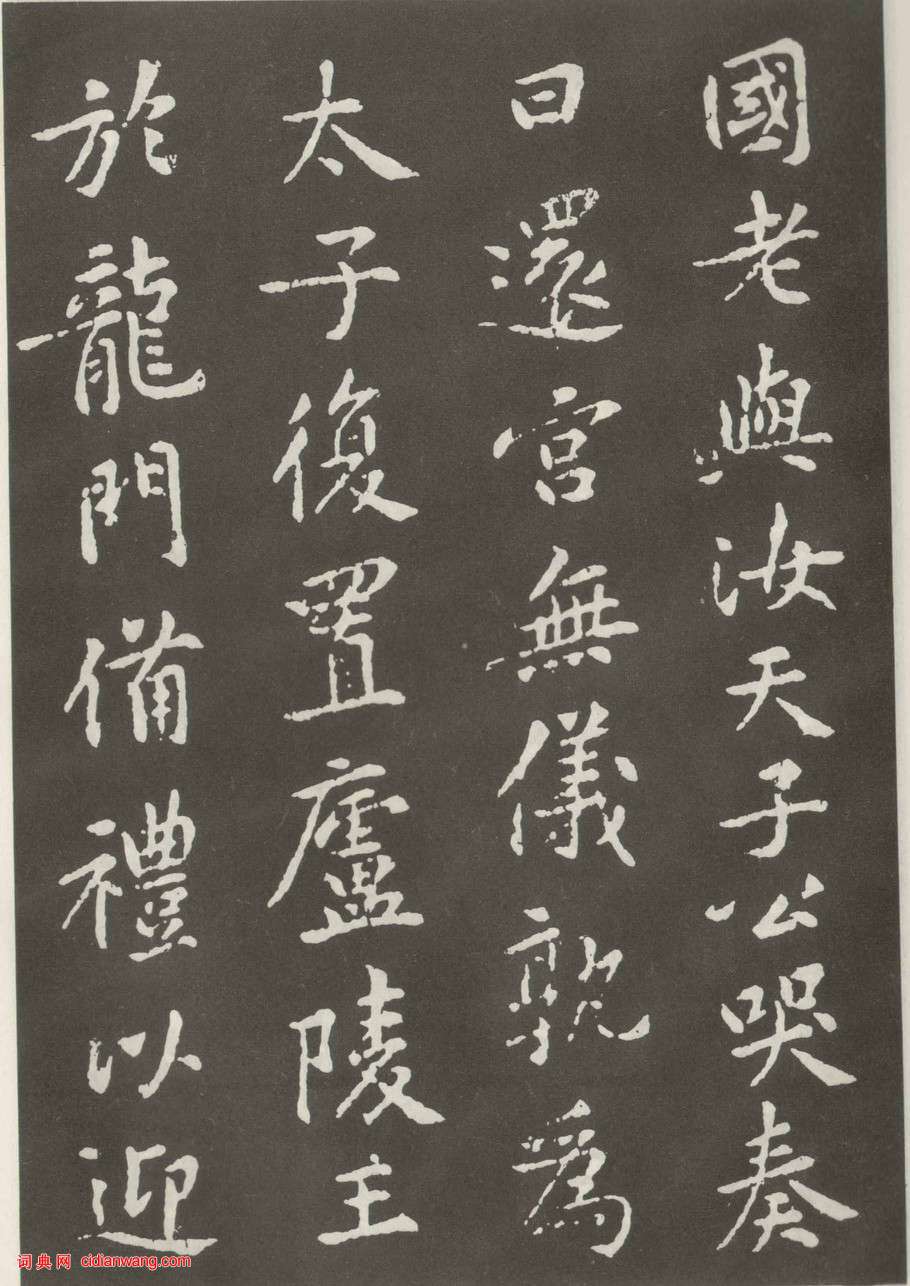 國老與汝天子公哭奏
曰還宮無儀孰爲
太子復置廬陵王
於龍門備禮以迎
词典网 cidianwang.com